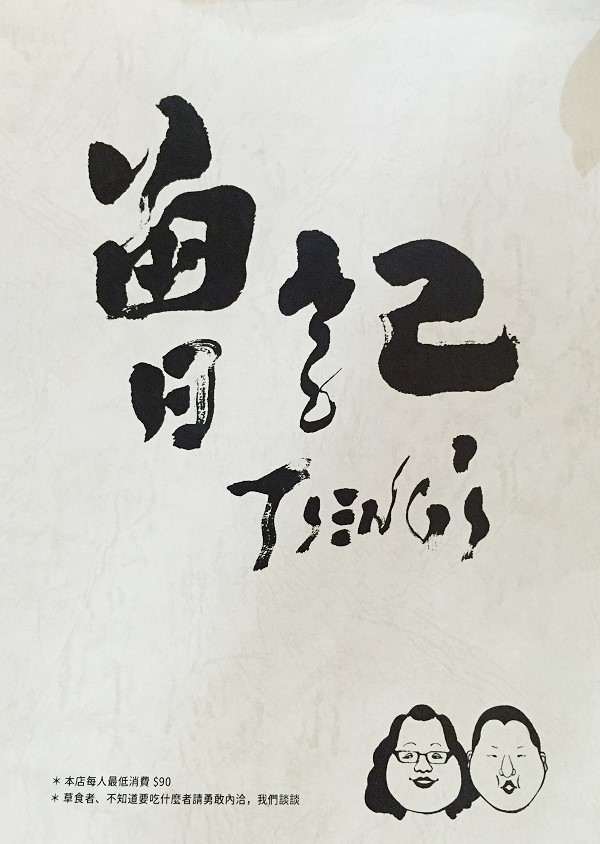 曾記
TSENG'S
＊本店每人最低消費 $90
＊草食者、不知道要吃什麼者請勇敢內洽，我們談談